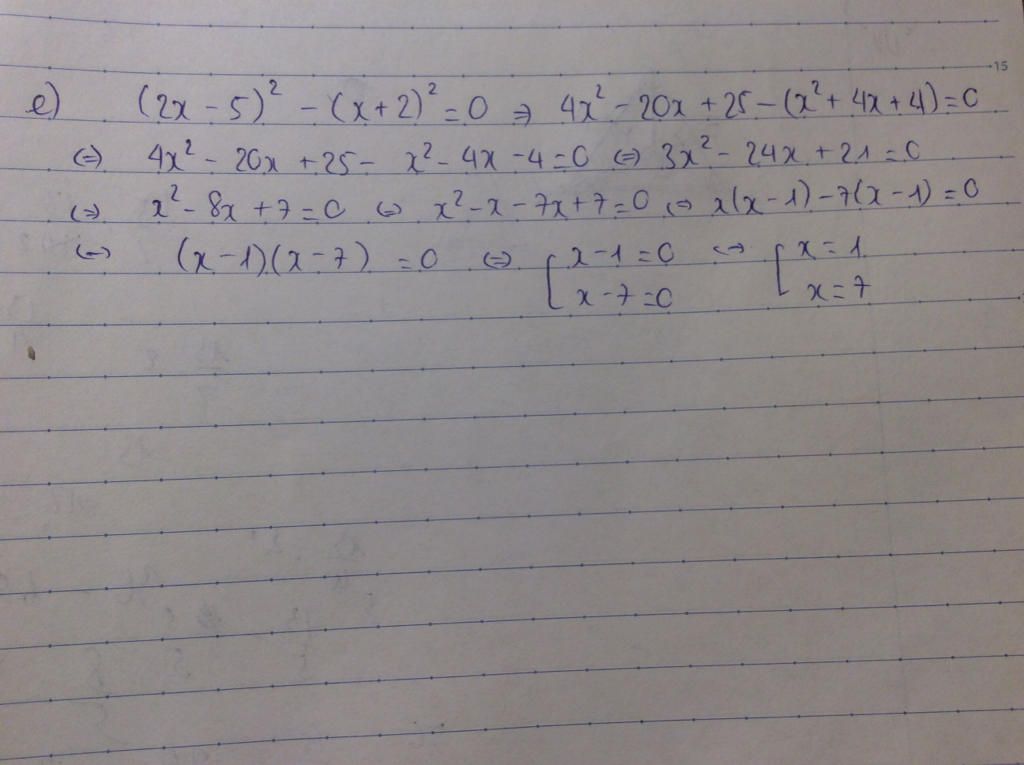 15
e) (2x - 5)² - (x + 2)² = 0 ⇒ 4x² - 20x + 25 - (x² + 4x + 4) = 0
⇔ 4x² - 20x + 25 - x² - 4x - 4 = 0 ⇔ 3x² - 24x + 21 = 0
⇔ x² - 8x + 7 = 0 ⇔ x² - x - 7x + 7 = 0 ⇔ x(x - 1) - 7(x - 1) = 0
⇔ (x - 1)(x - 7) = 0 ⇔ [ x - 1 = 0 ⇔ [ x = 1
x - 7 = 0 x = 7